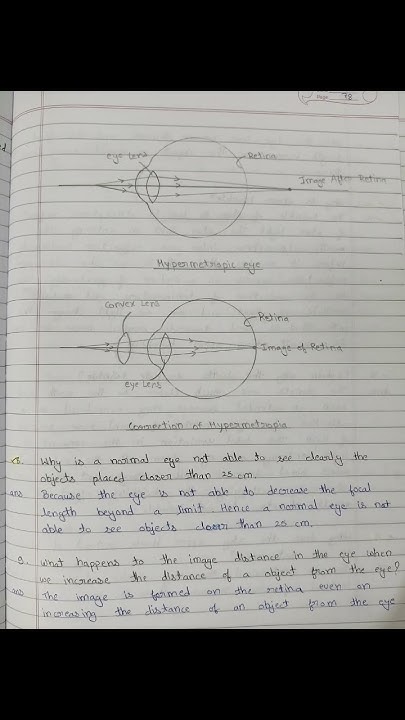 Page 78
eye Lens
Retina
Image After Retina
Hypermetropic eye
Convex Lens
Retina
Image of Retina
eye Lens
Correction of Hypermetropia
8. Why is a normal eye not able to see clearly the
objects placed closer than 25 cm.
ans Because the eye is not able to decrease the focal
length beyond a limit. Hence a normal eye is not
able to see objects closer than 25 cm.
9. What happens to the image distance in the eye when
we increase the distance of a object from the eye?
ans The image is formed on the retina even on
increasing the distance of an object from the eye